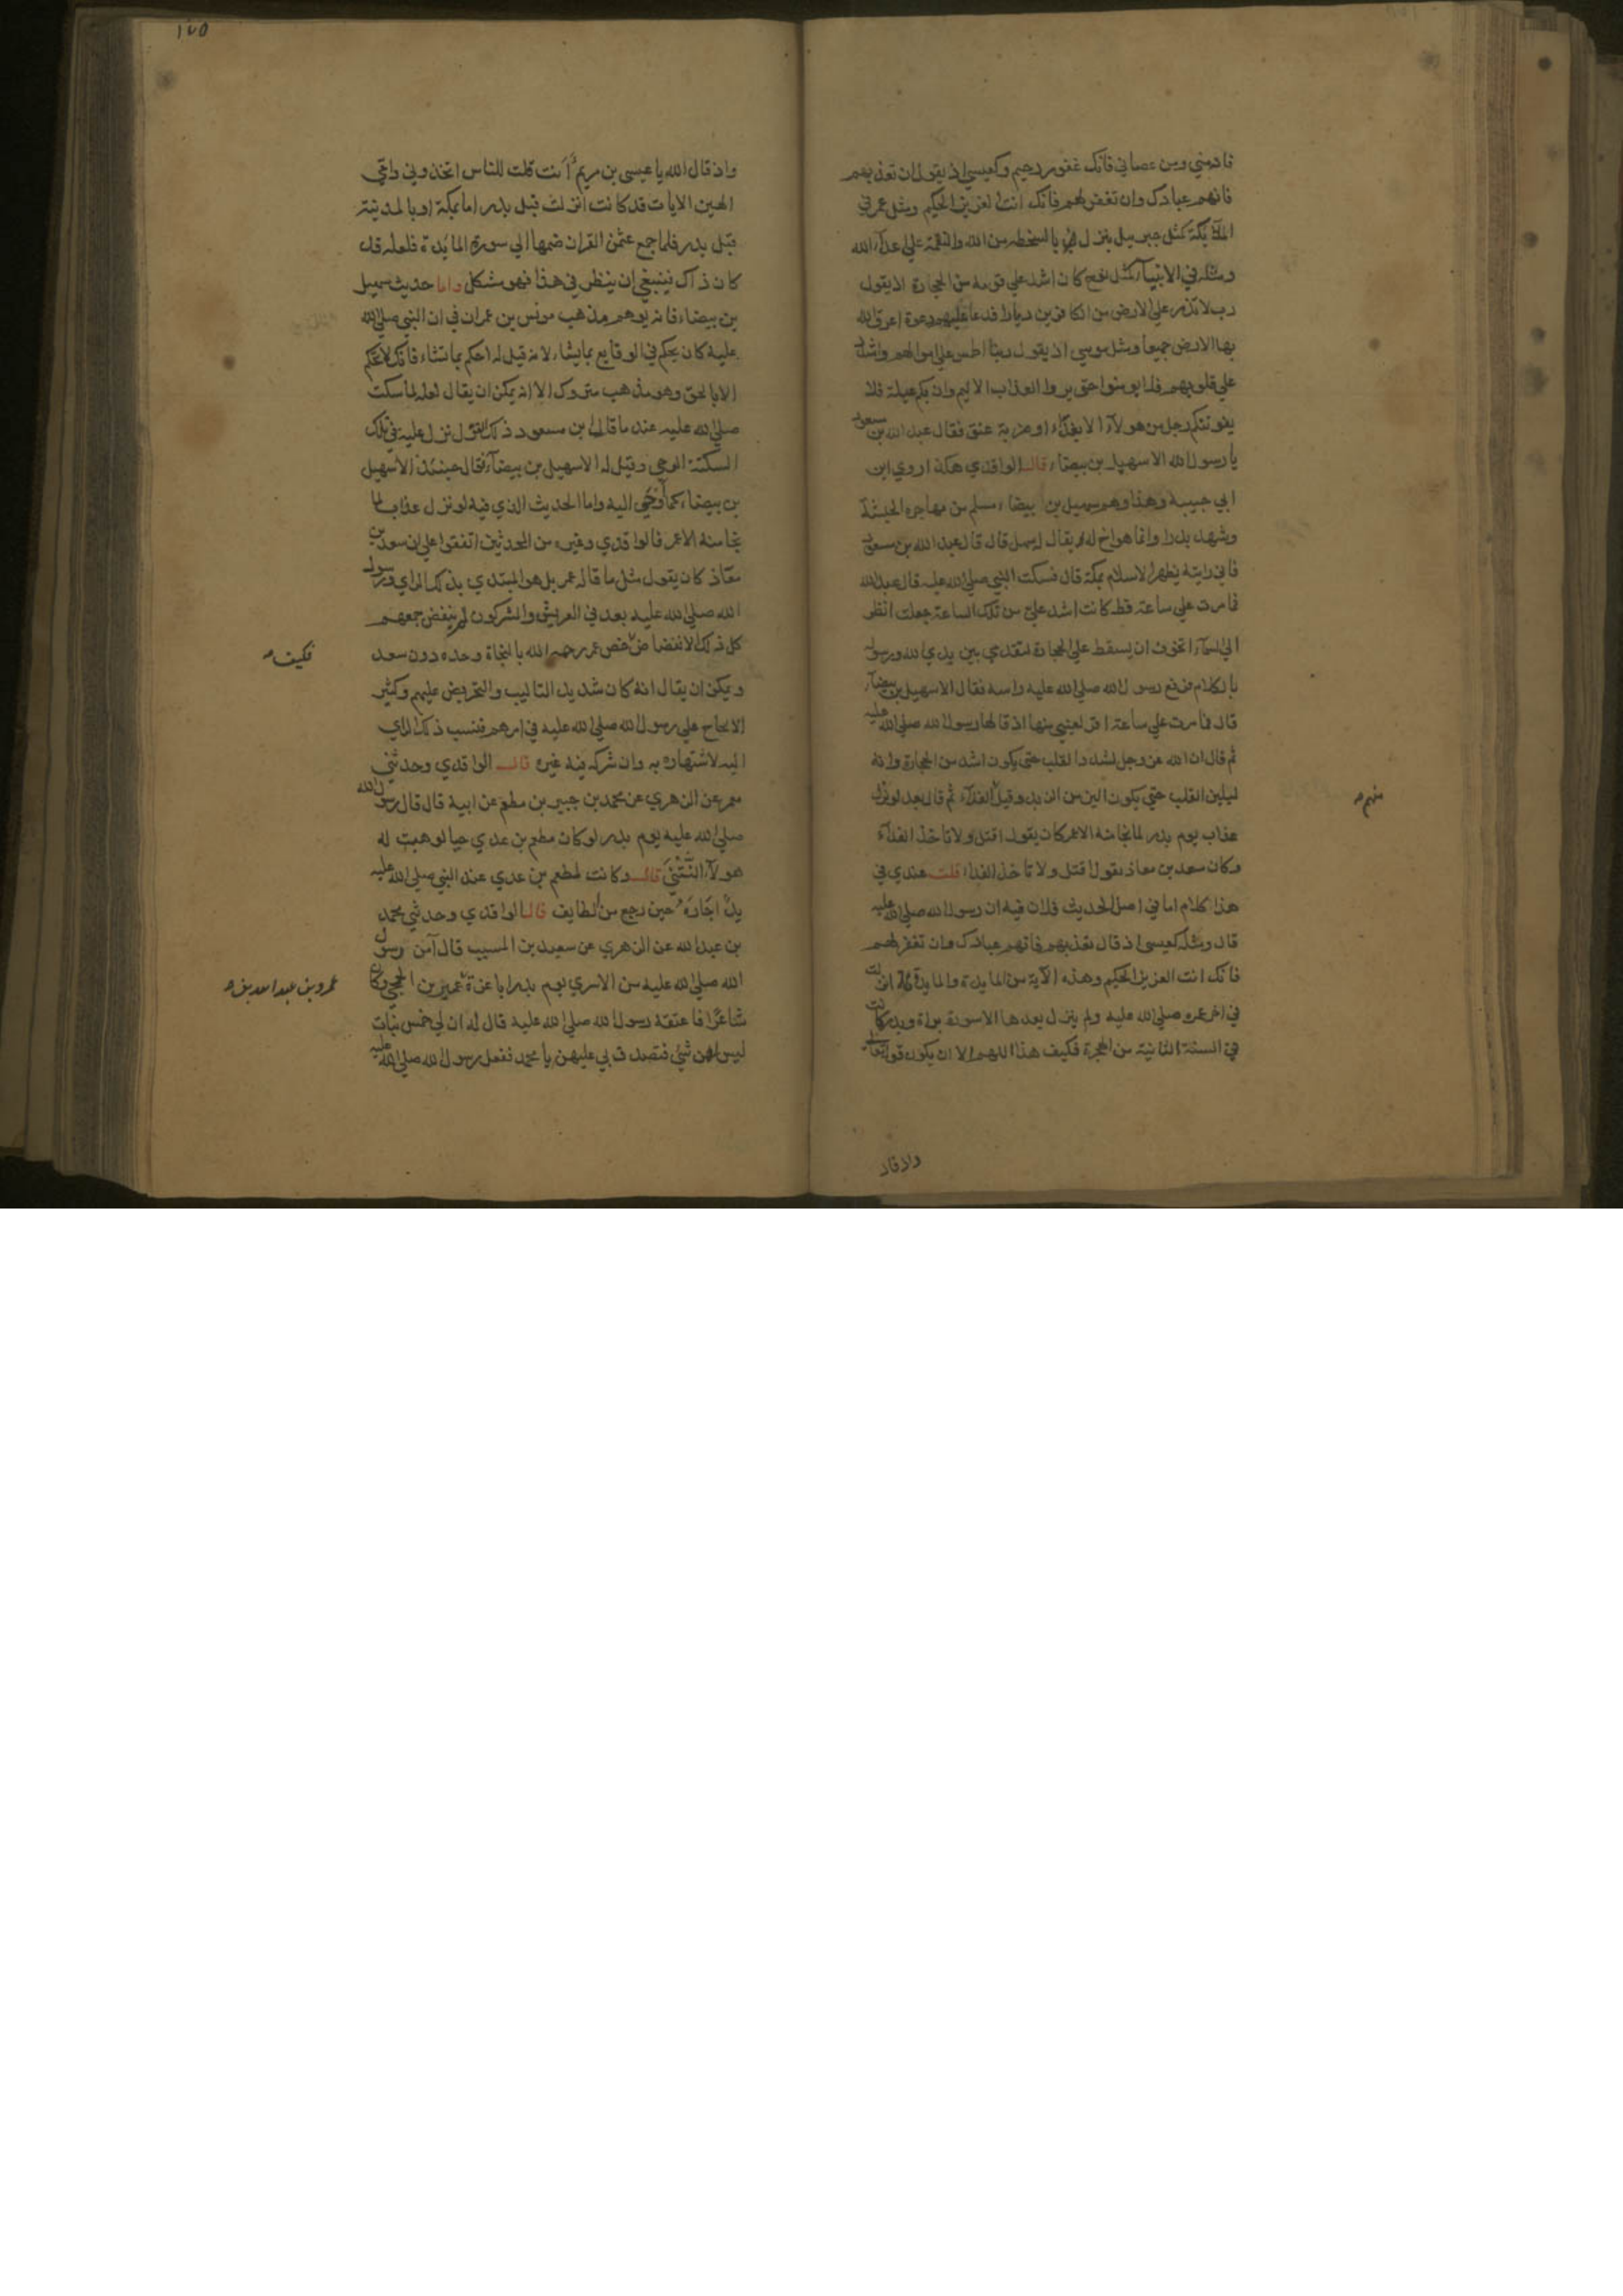 فانه مني ومن عصاني فانك غفور رحيم وكعيسى اذ يقول ان تعذبهم
فانهم عبادك وان تغفر لهم فانك انت العزيز الحكيم ومثل عمر في
الملآئكة كمثل جبريل ينزل بالسخطه من الله والنقمة علي عدآء الله
ومثله في الانبيآء كمثل نوح كان اشد علي قومه من الحجارة اذ يقول
رب لا تذر علي الارض من الكافرين ديارا فدعا عليهم دعوة اغرق الله
بها الارض جميعا ومثل موسي اذ يقول ربنا اطمس علي اموالهم واشدد
علي قلوبهم فلا يومنوا حتي يروا العذاب الاليم وان بكم عيلة فلا
يفوتنكم رجل من هولآء الا بفدآء او ضربة عنق فقال عبد الله بن مسعود
يا رسول الله الا سهيل بن بيضاء قال الواقدي هكذا روي ابن
ابي حبيبة وهذا وهم سهيل بن بيضاء مسلم من مهاجرة الحبشة
وشهد بدرا وانما هو اخ له يقال له سهل قال قال عبد الله بن مسعود
فاني رايته يظهر الاسلام بمكة قال فسكت النبي صلي الله عليه قال عبد الله
فما مرت علي ساعة قط كانت اشد علي من تلك الساعة جعلت انظر
الي السمآء اتخوف ان يسقط علي الحجارة لتقدمي بين يدي الله ورسوله
بالكلام فرفع رسول الله صلي الله عليه راسه فقال الا سهيل بن بيضآء
قال فما مرت علي ساعة اقر لعيني منها اذ قالها رسول الله صلي الله عليه
ثم قال ان الله عز وجل ليشدد القلب حتي يكون اشد من الحجارة وانه
ليلين القلب حتي يكون الين من الزبد وقبل الفدآء ثم قال بعد لو نزل
عذاب يوم بدر لما نجا منه الا عمر كان يقول اقتل ولا تاخذ الفدآء
وكان سعد بن معاذ يقول اقتل ولا تاخذ الفدآء قلت عندي في
هذا كلام اما في اصل الحديث فلان فيه ان رسول الله صلي الله عليه
قال ومثله كعيسى اذ قال ان تعذبهم فانهم عبادك وان تغفر لهم
فانك انت العزيز الحكيم وهذه الآية من المايدة والمايدة انزلت
في اخر عمره صلي الله عليه ولم ينزل بعدها الا سورة براة وبدر كانت
في السنة الثانية من الهجرة فكيف هذا اللهم الا ان يكون قوله تعالى
منهم
واذ قال
١٧٥
واذ قال الله يا عيسى بن مريم أانت قلت للناس اتخذوني وامي
الهين الايات قد كانت انزلت قبل بدر اما بمكة او بالمدينة
قبل بدر فلما جمع عثمن القران ضمها الي سورة المائدة فلعله قد
كان ذاك فينبغي ان ينظر في هذا فهو مشكل واما حديث سهيل
بن بيضاء فانه يوهم مذهب مونس بن عمران في ان النبي صلي الله
عليه كان يحكم في الوقايع بما يشاء لانه قيل له احكم بما تشاء فانك لا تحكم
الا بالحق وهو مذهب متروك الا انه يمكن ان يقال لعله لما سكت
صلي الله عليه عند ما قال ابن مسعود ذلك القول نزل عليه في تلك
السكتة الوحي وقيل له الا سهيل بن بيضآء فقال حينئذ الا سهيل
بن بيضاء كما أوحي اليه واما الحديث الذي فيه لو نزل عذاب لما
نجا منه الا عمر فالواقدي وغيره من المحدثين اتفقوا علي ان سعد بن
معاذ كان يقول مثل ما قاله عمر بل هو المبتدي بذلك الراي ورسول
الله صلي الله عليه بعد في العريش والمشركون لم ينفض جمعهم
كل ذلك الانفضاض خص عمر رحمه الله بالنجاة وحده دون سعد
ويمكن ان يقال انه كان شديد التاليب والتحريض عليهم وكثير
الالحاح علي رسول الله صلي الله عليه في امرهم فنسب ذلك الراي
اليه لاشتهاره به وان شركه فيه غيره قال الواقدي وحدثني
معمر عن الزهري عن محمد بن جبير بن مطعم عن ابيه قال قال رسول الله
صلي الله عليه يوم بدر لو كان مطعم بن عدي حيا لوهبت له
هولآء النتنى قال وكانت لمطعم بن عدي عند النبي صلي الله عليه
يد اجاره حين رجع من الطايف قال الواقدي وحدثني محمد
بن عبد الله عن الزهري عن سعيد بن المسيب قال آمن رسول
الله صلي الله عليه من الاسري يوم بدر ابا عزة عمير بن الجمحي وكان
شاعرا فاعتقه رسول الله صلي الله عليه قال له ان لي خمس بنات
ليس لهن شئ فتصدق بي عليهن يا محمد ففعل رسول الله صلي الله عليه
فكيف
عمرو بن عبد الله بن